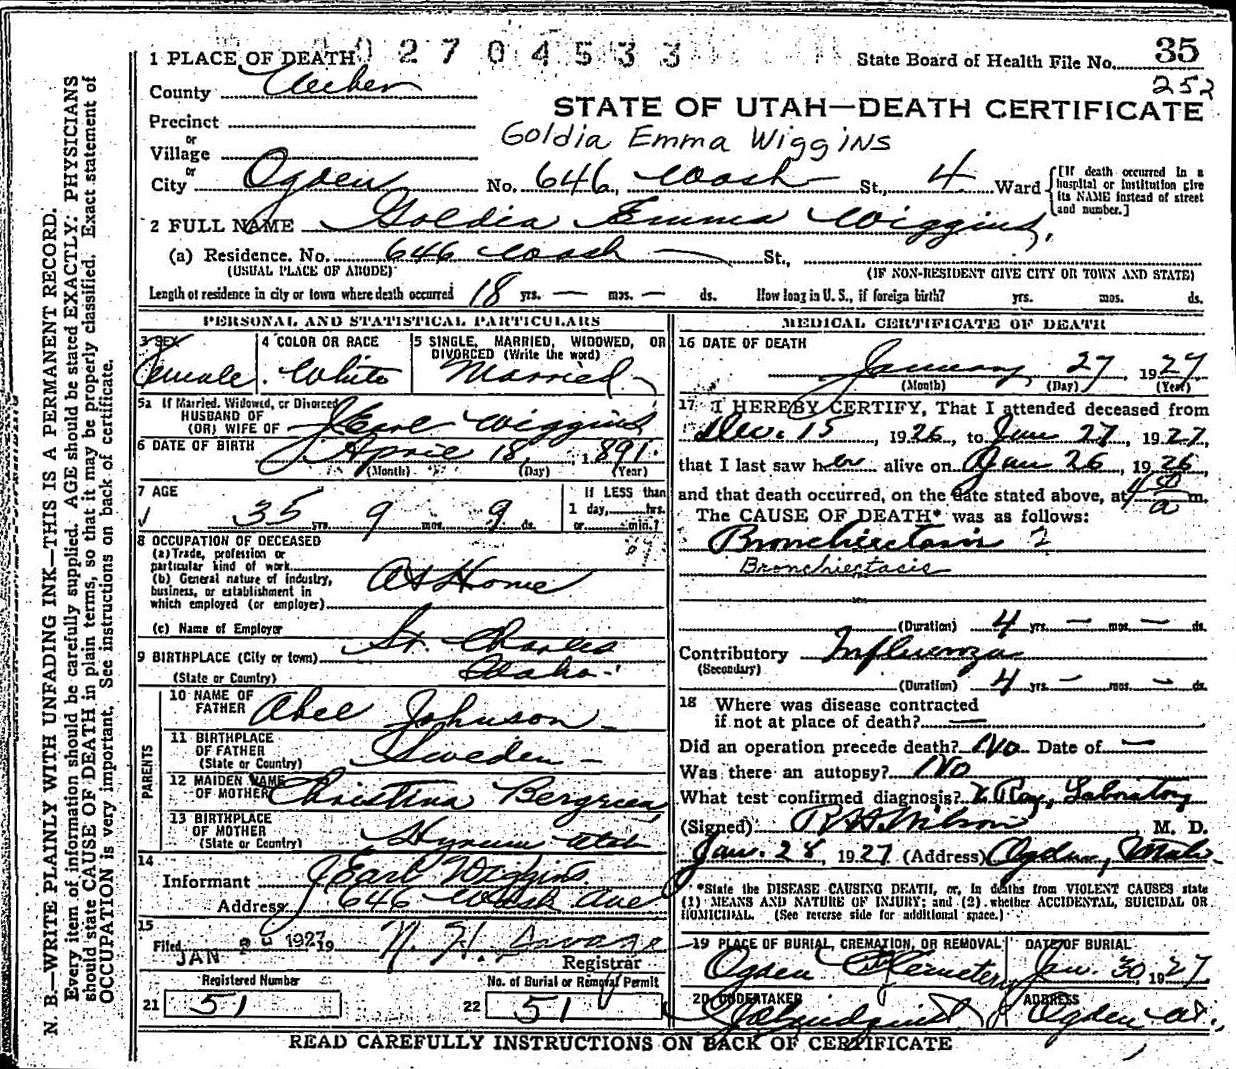 N. B.—WRITE PLAINLY WITH UNFADING INK—THIS IS A PERMANENT RECORD.
Every item of information should be carefully supplied. AGE should be stated EXACTLY. PHYSICIANS
should state CAUSE OF DEATH in plain terms, so that it may be properly classified. Exact statement of
OCCUPATION is very important. See instructions on back of certificate.
1 PLACE OF DEATH 0 2 7 0 4 5 3 3 State Board of Health File No. 35
252
County Weber
STATE OF UTAH—DEATH CERTIFICATE
Precinct
or
Village
Goldia Emma Wiggins
or
City Ogden No. 646, Wash St., 4 Ward {[If death occurred in a hospital or institution give its NAME instead of street and number.]
2 FULL NAME Goldia Emma Wiggins
(a) Residence. No. 646 Wash St.,
(USUAL PLACE OF ABODE) (IF NON-RESIDENT GIVE CITY OR TOWN AND STATE)
Length of residence in city or town where death occurred 18 yrs. — mos. — ds. How long in U. S., if foreign birth? yrs. mos. ds.
PERSONAL AND STATISTICAL PARTICULARS
3 SEX
Female
4 COLOR OR RACE
White
5 SINGLE, MARRIED, WIDOWED, OR
DIVORCED (Write the word)
Married
5a If Married, Widowed, or Divorced
HUSBAND OF
(OR) WIFE OF J Earl Wiggins
6 DATE OF BIRTH April 18, 1891
(Month) (Day) (Year)
7 AGE
35 yrs. 9 mos. 9 ds.
If LESS than
1 day, hrs.
or min.?
8 OCCUPATION OF DECEASED
(a) Trade, profession or
particular kind of work
(b) General nature of industry,
business, or establishment in
which employed (or employer) At Home
(c) Name of Employer
9 BIRTHPLACE (City or town) St. Charles
(State or Country) Idaho
PARENTS
10 NAME OF
FATHER Abel Johnson
11 BIRTHPLACE
OF FATHER
(State or Country) Sweden
12 MAIDEN NAME
OF MOTHER Christina Bergreen
13 BIRTHPLACE
OF MOTHER
(State or Country) Hyrum Utah
14
Informant J Earl Wiggins
Address 646 Wash Ave
15
Filed JAN 1927 19 Registrar
Registered Number
21 51
No. of Burial or Removal Permit
22 51
MEDICAL CERTIFICATE OF DEATH
16 DATE OF DEATH
January 27 1927
(Month) (Day) (Year)
17 I HEREBY CERTIFY, That I attended deceased from
Dec. 15, 1926, to Jan 27, 1927,
that I last saw her alive on Jan 26, 1926,
and that death occurred, on the date stated above, at m.
The CAUSE OF DEATH* was as follows:
Bronchiectasis ?
Bronchiectasis
(Duration) 4 yrs. — mos. — ds.
Contributory Influenza
(Secondary)
(Duration) 4 yrs. — mos. — ds.
18 Where was disease contracted
if not at place of death? —
Did an operation precede death? No Date of —
Was there an autopsy? No
What test confirmed diagnosis? X Ray, Laboratory
(Signed) R H Wilson M. D.
Jan. 28, 1927 (Address) Ogden, Utah
*State the DISEASE CAUSING DEATH, or, in deaths from VIOLENT CAUSES state
(1) MEANS AND NATURE OF INJURY; and (2) whether ACCIDENTAL, SUICIDAL OR
HOMICIDAL. (See reverse side for additional space.)
19 PLACE OF BURIAL, CREMATION, OR REMOVAL
Ogden Cemetery
DATE OF BURIAL
Jan. 30, 1927
20 UNDERTAKER
ADDRESS
Ogden Ut.
READ CAREFULLY INSTRUCTIONS ON BACK OF CERTIFICATE